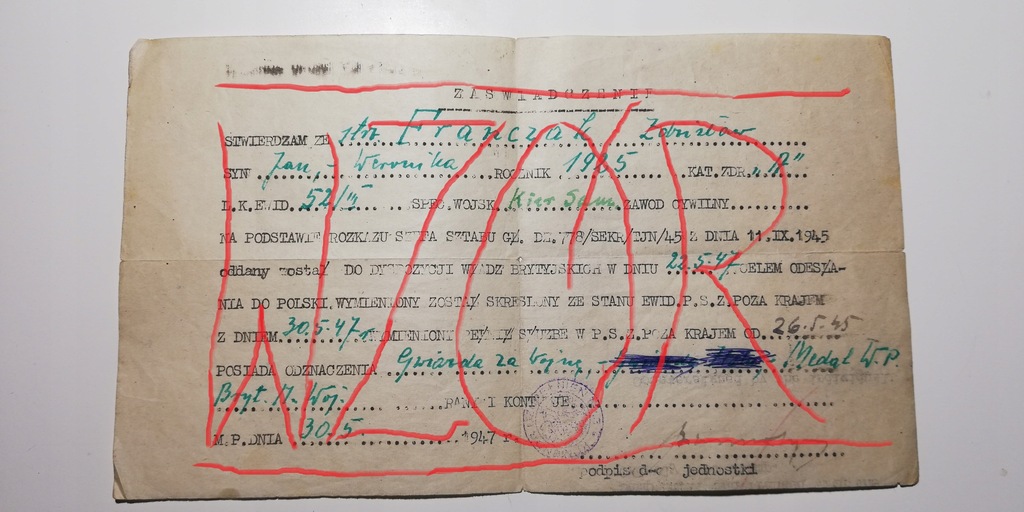 ZASWIADCZENIE
STWIERDZAM ZE str. Franczak Zdzisław
SYN Jan, - Weronika ROCZNIK 1925 KAT.ZDR. „A"
L.K.EWID. 52/II SPEC.WOJSK Kier Sam. ZAWOD CYWILNY
NA PODSTAWIE ROZKAZU SZEFA SZTABU GŁ. DZ.778/SEKR/TJN/45 Z DNIA 11.IX.1945
oddany został DO DYSPOZYCJI WŁADZ BRYTYJSKICH W DNIU 22.5.47 CELEM ODESŁA-
NIA DO POLSKI.WYMIENIONY ZOSTAŁ SKREŚLONY ZE STANU EWID.P.S.Z.POZA KRAJEM
Z DNIEM 30.5.47 r. WYMIENIONY PEŁNIŁ SŁUŻBE W P.S.Z.POZA KRAJEM OD 26.5.45
POSIADA ODZNACZENIA Gwiazda za Wojnę Medal W.P.
Bryt. M. Woj. RANY I KONTUZJE
M.P.DNIA 30/5 1947 r
podpis d-cy jednostki
WZÓR